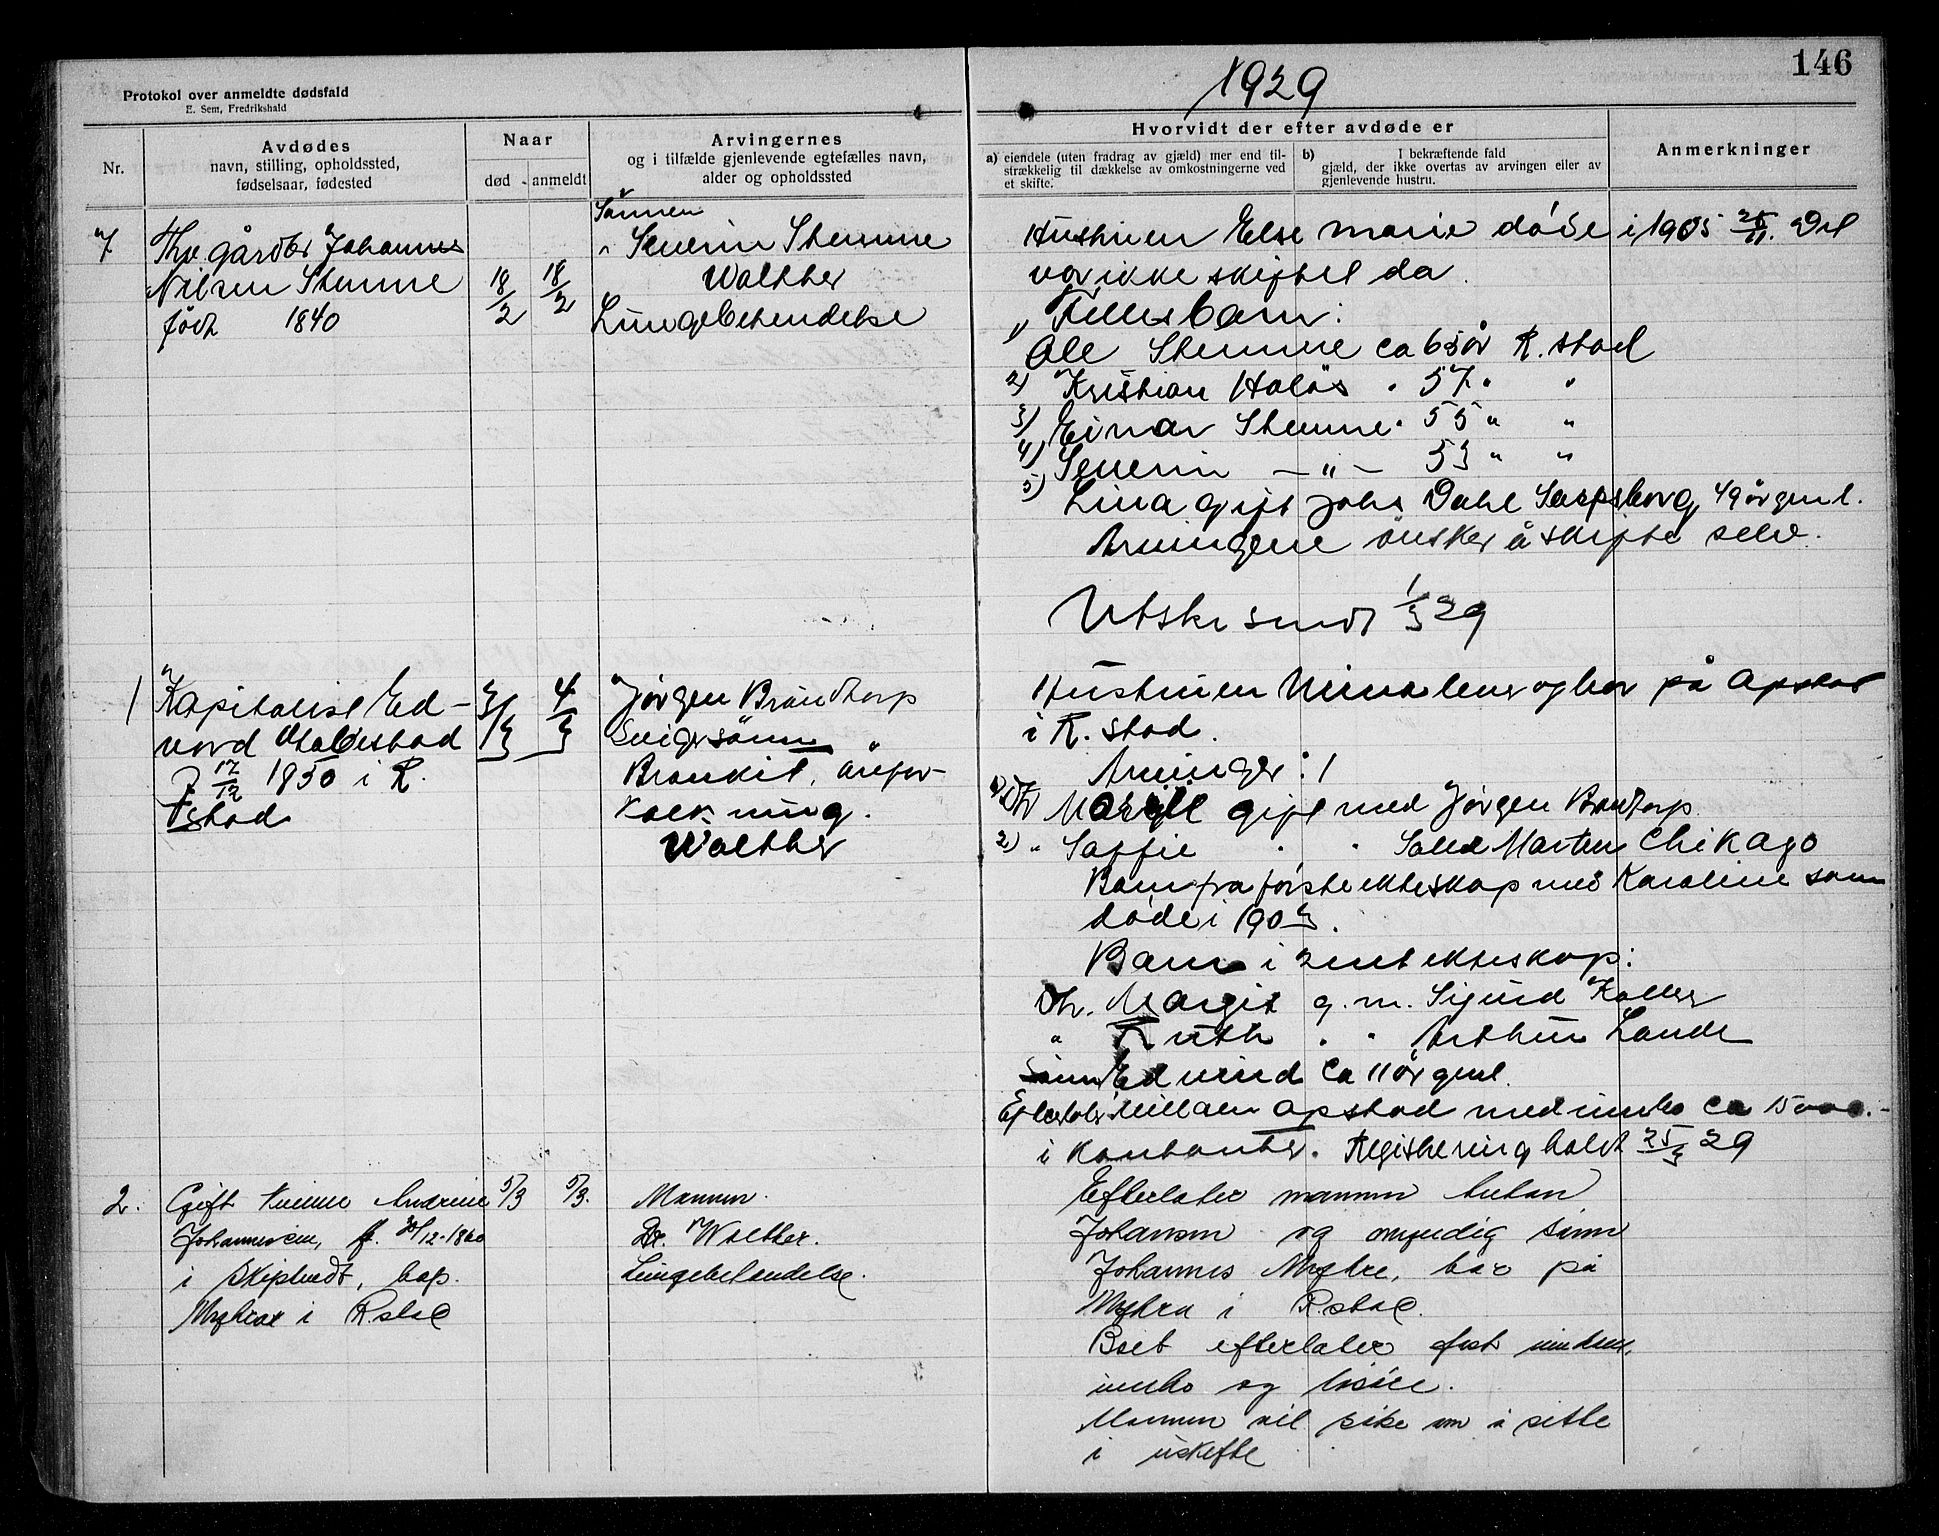 146
1929
Protokol over anmeldte dødsfald
E. Sem, Fredrikshald
Nr.
Avdødes
navn, stilling, opholdssted,
fødselsaar, fødested
Naar
død
anmeldt
Arvingernes
og i tilfælde gjenlevende egtefælles navn,
alder og opholdssted
Hvorvidt der efter avdøde er
a) eiendele (uten fradrag av gjæld) mer end til-
strækkelig til dækkelse av omkostningerne ved
et skifte.
b) I bekræftende fald
gjæld, der ikke overtas av arvingen eller av
gjenlevende hustru.
Anmerkninger
7
gårdbr Johannes
Nilsen Stemme
født 1840
18/2
18/2
Sønnen
Severin Stemme
Walther
Lungebetendelse
Hustruen Else Marie døde i 1905 25/11. Det
var ikke skiftet da.
Fellesbarn:
1) Ole Stemme ca 63 år R.stad
2) Kristian Holøs " 57 " "
3) Einar Stemme " 55 " "
4) Severin — " — 53 " "
5) Lina gift Johs Dahl Sarpsborg, 49 år gml.
Arvingene ønsker å skifte selv.
Utskr sendt 1/3 29
1
Kapitalist Ed-
vard
f. 17/12 1850 i R.
stad
3/3
4/3
Jørgen Brandtorp
Svigersønn "
Bronkit, årefor-
kalkning.
Walther
Hustruen Mina lever og bor på Opstad
i R.stad.
Arvinger:
1) Dt. gift med Jørgen Brandtorp
2) " Saffie " " Martin Chikago
Barn fra første ekteskap med Karoline som
døde i 1903.
Barn i 2net ekteskap:
Dt. Margit g. m. Sigurd
" Ruth " " Arthur Lande
Sønn Edvind ca 11 år gml.
Efterlater Opstad med innbo ca 15000.-
i kontanter. Registrering holdt 25/3 29
2.
Gift kvinne Andrine
Johannesen, f. /12-1860
i Skiptvedt, bop.
i R.stad
5/3
5/3.
Mannen.
Dr. Walther.
Lungebetendelse.
Efterlater mannen Anton
Johansen og myndig sønn
Johannes Myhre, bor på
i R.stad.
Boet efterlater fast eiendom,
innbo og løsøre.
Mannen vil søke om å sitte
i uskifte